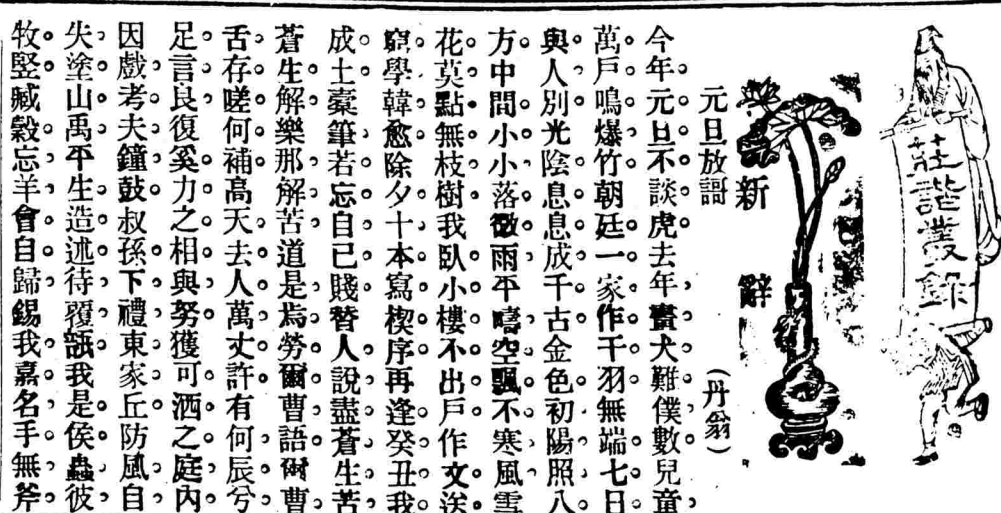 莊諧叢錄
新辭
元旦放謌 (丹翁)
今年元旦不談虎去年畫犬難僕數兒童
萬戶鳴爆竹朝廷一家作干羽無端七日
與人別光陰息息成千古金色初陽照八
方中間小小落微雨平疇空飄不寒風雪
花莫點無枝樹我臥小樓不出戶作文送
窮學韓愈除夕十本寫楔序再逢癸丑我
成土槖筆若忘自己賤替人說盡蒼生苦
蒼生解樂那解苦道是焉勞爾曹語爾曹
舌存嗟何補高天去人萬丈許有何辰兮
足言良復奚力之相與努獲可洒之庭內
因戲考夫鐘鼓叔孫下禮東家丘防風自
失塗山禹平生造述待覆瓿我是侯蟲彼
牧竪臧穀忘羊會自歸錫我嘉名手無斧